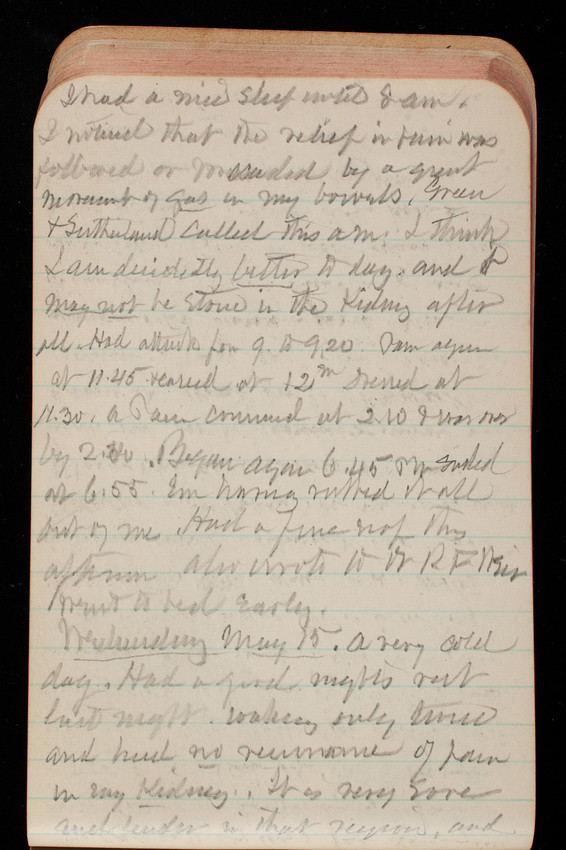 I had a nice sleep until 8 am.
I noticed that the relief in pain was
followed or preceded by a great
movement of gas in my bowels. Green
& Sutherland called this am. I think
I am decidedly better to day. and it
may not be stone in the Kidney after
all. Had attack from 9. to 9.20. Pain again
at 11.45 ceased at 12 m dressed at
11.30. a Pain commenced at 2.10 & was over
by 2.30. Began again 6.45 PM ended
at 6.55. Em rubbed it all
out of me. Had a fine nap this
afternoon also wrote to Dr R F Weir
Went to bed early.
Wednesday May 15. A very cold
day. Had a good nights rest
last night. waking only twice
and had no recurrence of pain
in my Kidney. It is very sore
and tender in that region, and